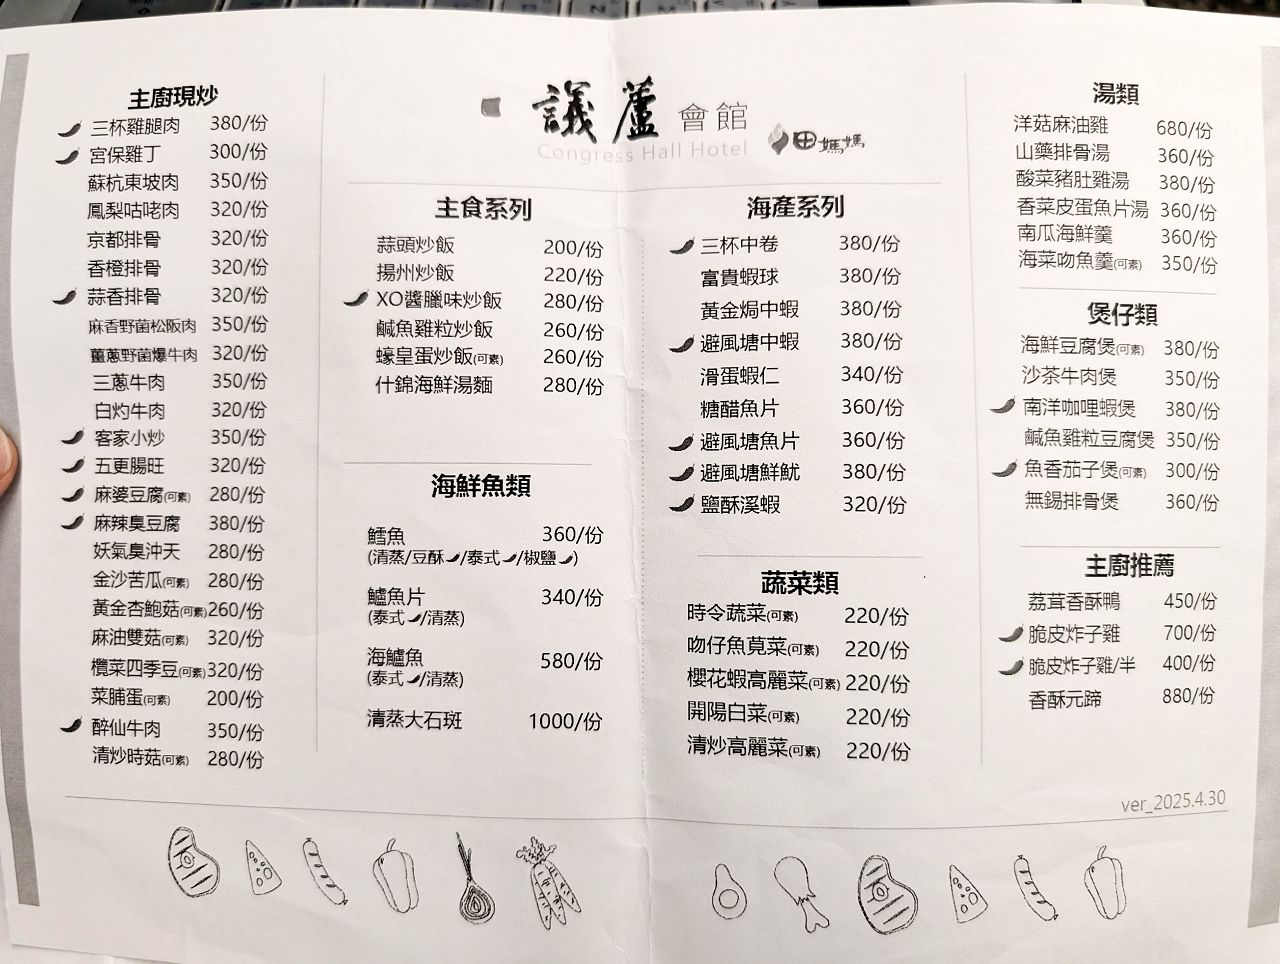 議蘆會館
Congress Hall Hotel
田媽媽
主廚現炒
三杯雞腿肉 380/份
宮保雞丁 300/份
蘇杭東坡肉 350/份
鳳梨咕咾肉 320/份
京都排骨 320/份
香橙排骨 320/份
蒜香排骨 320/份
麻香野菌松阪肉 350/份
薑蔥野菌爆牛肉 320/份
三蔥牛肉 350/份
白灼牛肉 320/份
客家小炒 350/份
五更腸旺 320/份
麻婆豆腐(可素) 280/份
麻辣臭豆腐 380/份
妖氣臭沖天 280/份
金沙苦瓜(可素) 280/份
黃金杏鮑菇(可素) 260/份
麻油雙菇(可素) 320/份
欖菜四季豆(可素) 320/份
菜脯蛋(可素) 200/份
醉仙牛肉 350/份
清炒時菇(可素) 280/份
主食系列
蒜頭炒飯 200/份
揚州炒飯 220/份
XO醬臘味炒飯 280/份
鹹魚雞粒炒飯 260/份
蠔皇蛋炒飯(可素) 260/份
什錦海鮮湯麵 280/份
海鮮魚類
鱈魚 360/份
(清蒸/豆酥/泰式/椒鹽)
鱸魚片 340/份
(泰式/清蒸)
海鱸魚 580/份
(泰式/清蒸)
清蒸大石斑 1000/份
海產系列
三杯中卷 380/份
富貴蝦球 380/份
黃金焗中蝦 380/份
避風塘中蝦 380/份
滑蛋蝦仁 340/份
糖醋魚片 360/份
避風塘魚片 360/份
避風塘鮮魷 380/份
鹽酥溪蝦 320/份
蔬菜類
時令蔬菜(可素) 220/份
吻仔魚莧菜(可素) 220/份
櫻花蝦高麗菜(可素) 220/份
開陽白菜(可素) 220/份
清炒高麗菜(可素) 220/份
湯類
洋菇麻油雞 680/份
山藥排骨湯 360/份
酸菜豬肚雞湯 380/份
香菜皮蛋魚片湯 360/份
南瓜海鮮羹 360/份
海菜吻魚羹(可素) 350/份
煲仔類
海鮮豆腐煲(可素) 380/份
沙茶牛肉煲 350/份
南洋咖哩蝦煲 380/份
鹹魚雞粒豆腐煲 350/份
魚香茄子煲(可素) 300/份
無錫排骨煲 360/份
主廚推薦
荔茸香酥鴨 450/份
脆皮炸子雞 700/份
脆皮炸子雞/半 400/份
香酥元蹄 880/份
ver_2025.4.30